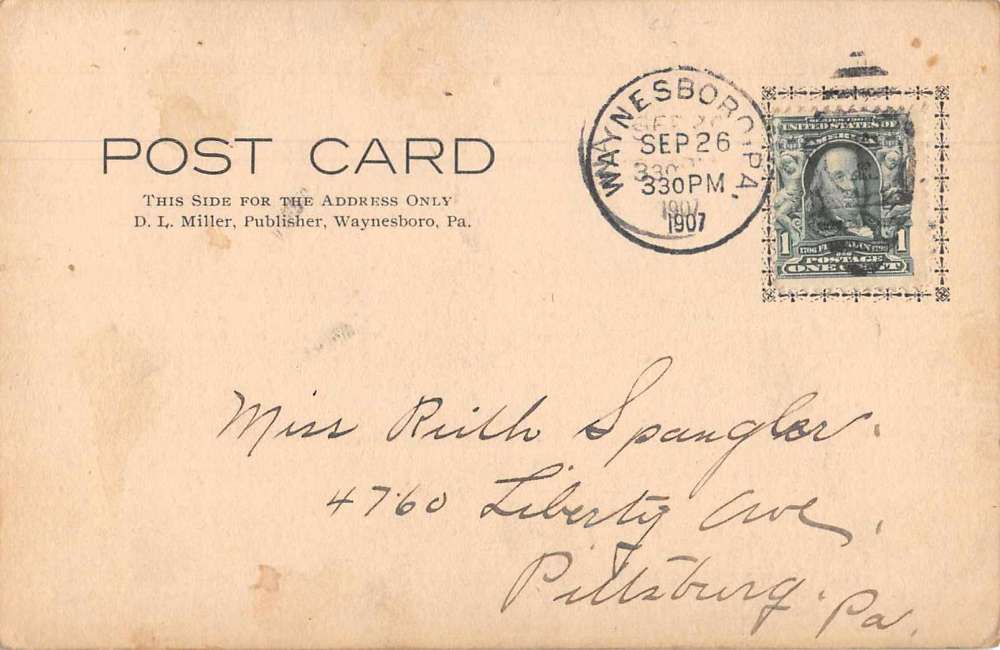 POST CARD
THIS SIDE FOR THE ADDRESS ONLY
D. L. Miller, Publisher, Waynesboro, Pa.
WAYNESBORO, PA.
SEP 26
330 PM
1907
1907
UNITED STATES OF
AMERICA
1 1706 FRANKLIN 1790 1
POSTAGE
ONE CENT
Miss Ruth Spangler.
4760 Liberty Ave,
Pittsburg. Pa.